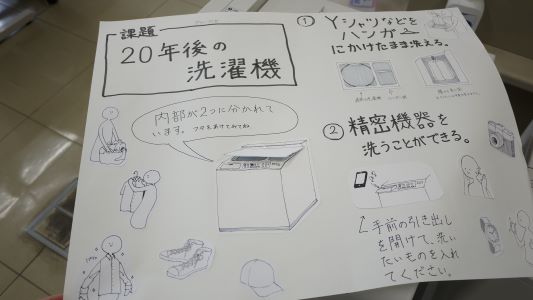 課題
20年後の
洗濯機
内部が2つに分かれて
います。フタをあけてみてね。
① Yシャツなどを
ハンガー
にかけたまま洗える。
② 精密機器を
洗うことができる。
手前の引き出し
を開けて、洗い
たいものを入れ
てください。